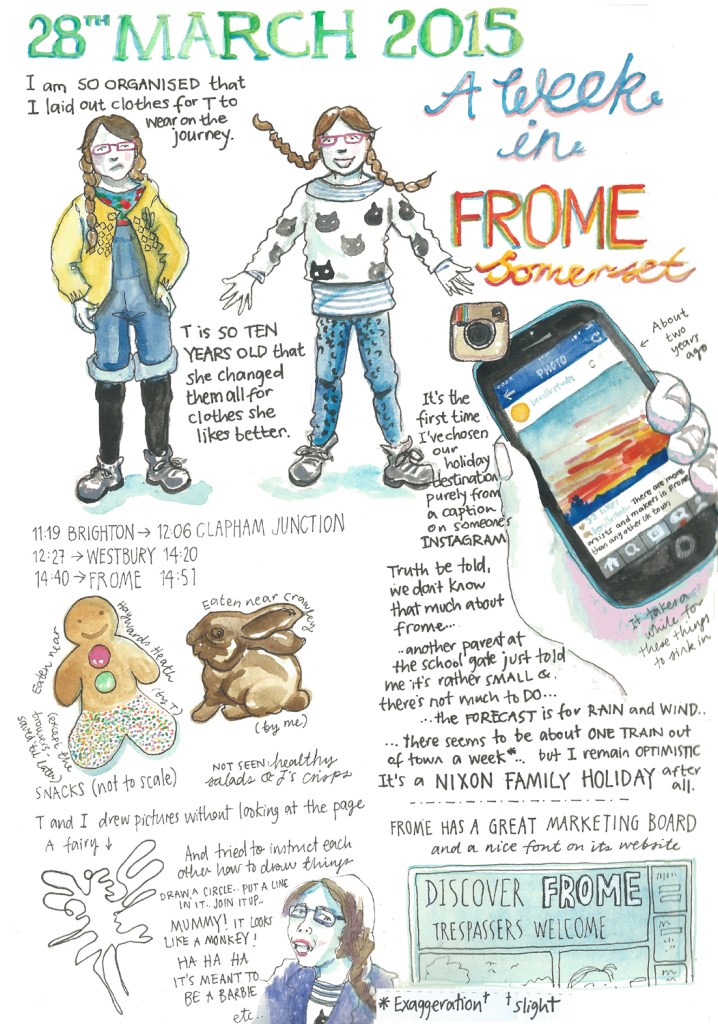 28TH MARCH 2015
I am SO ORGANISED that
I laid out clothes for T to
wear on the
journey.
A Week
in
FROME
Somerset
T is SO TEN
YEARS OLD that
she changed
them all for
clothes she
likes better.
About
two
years
ago
PHOTO
There are more
artists and makers in frome
than any other UK town
It's the
first time
I've chosen
our
holiday
destination
purely from
a caption
on someone's
INSTAGRAM
It takes a
while for
these things
to sink in
11:19 BRIGHTON → 12:06 CLAPHAM JUNCTION
12:27 → WESTBURY 14:20
14:40 → FROME 14:51
Truth be told,
we don't know
that much about
frome...
..another parent at
the school gate just told
me it's rather SMALL &
there's not much to DO...
...the FORECAST is for RAIN and WIND..
... there seems to be about ONE TRAIN out
of town a week*.. but I remain OPTIMISTIC
It's a NIXON FAMILY HOLIDAY after
all.
Eaten near
Haywards Heath
(by T)
(except the
trowsers-
saved 'til later)
Eaten near Crawley
(by me)
SNACKS (not to scale)
NOT SEEN: healthy
salads & J's crisps
T and I drew pictures without looking at the page
A fairy ↓
And tried to instruct each
other how to draw things
DRAW A CIRCLE.. PUT A LINE
IN IT.. JOIN IT UP..
MUMMY! IT LOOKS
LIKE A MONKEY!
HA HA HA
IT'S MEANT TO
BE A BARBIE
etc..
FROME HAS A GREAT MARKETING BOARD
and a nice font on its website
DISCOVER FROME
TRESPASSERS WELCOME
* Exaggeration† †slight